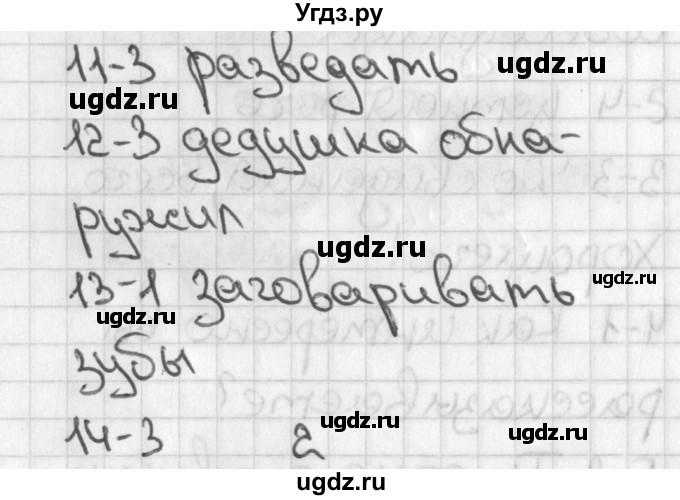 Угдз.ру
11-3 разведать
ugdz.ru
ugdz.ru
12-3 дедушка обна-
ружил
ugdz.ru
13-1 заговаривать
ugdz.ru
ugdz.ru
зубы
14-3 2
ugdz.ru
ugdz.ru
ugdz.ru